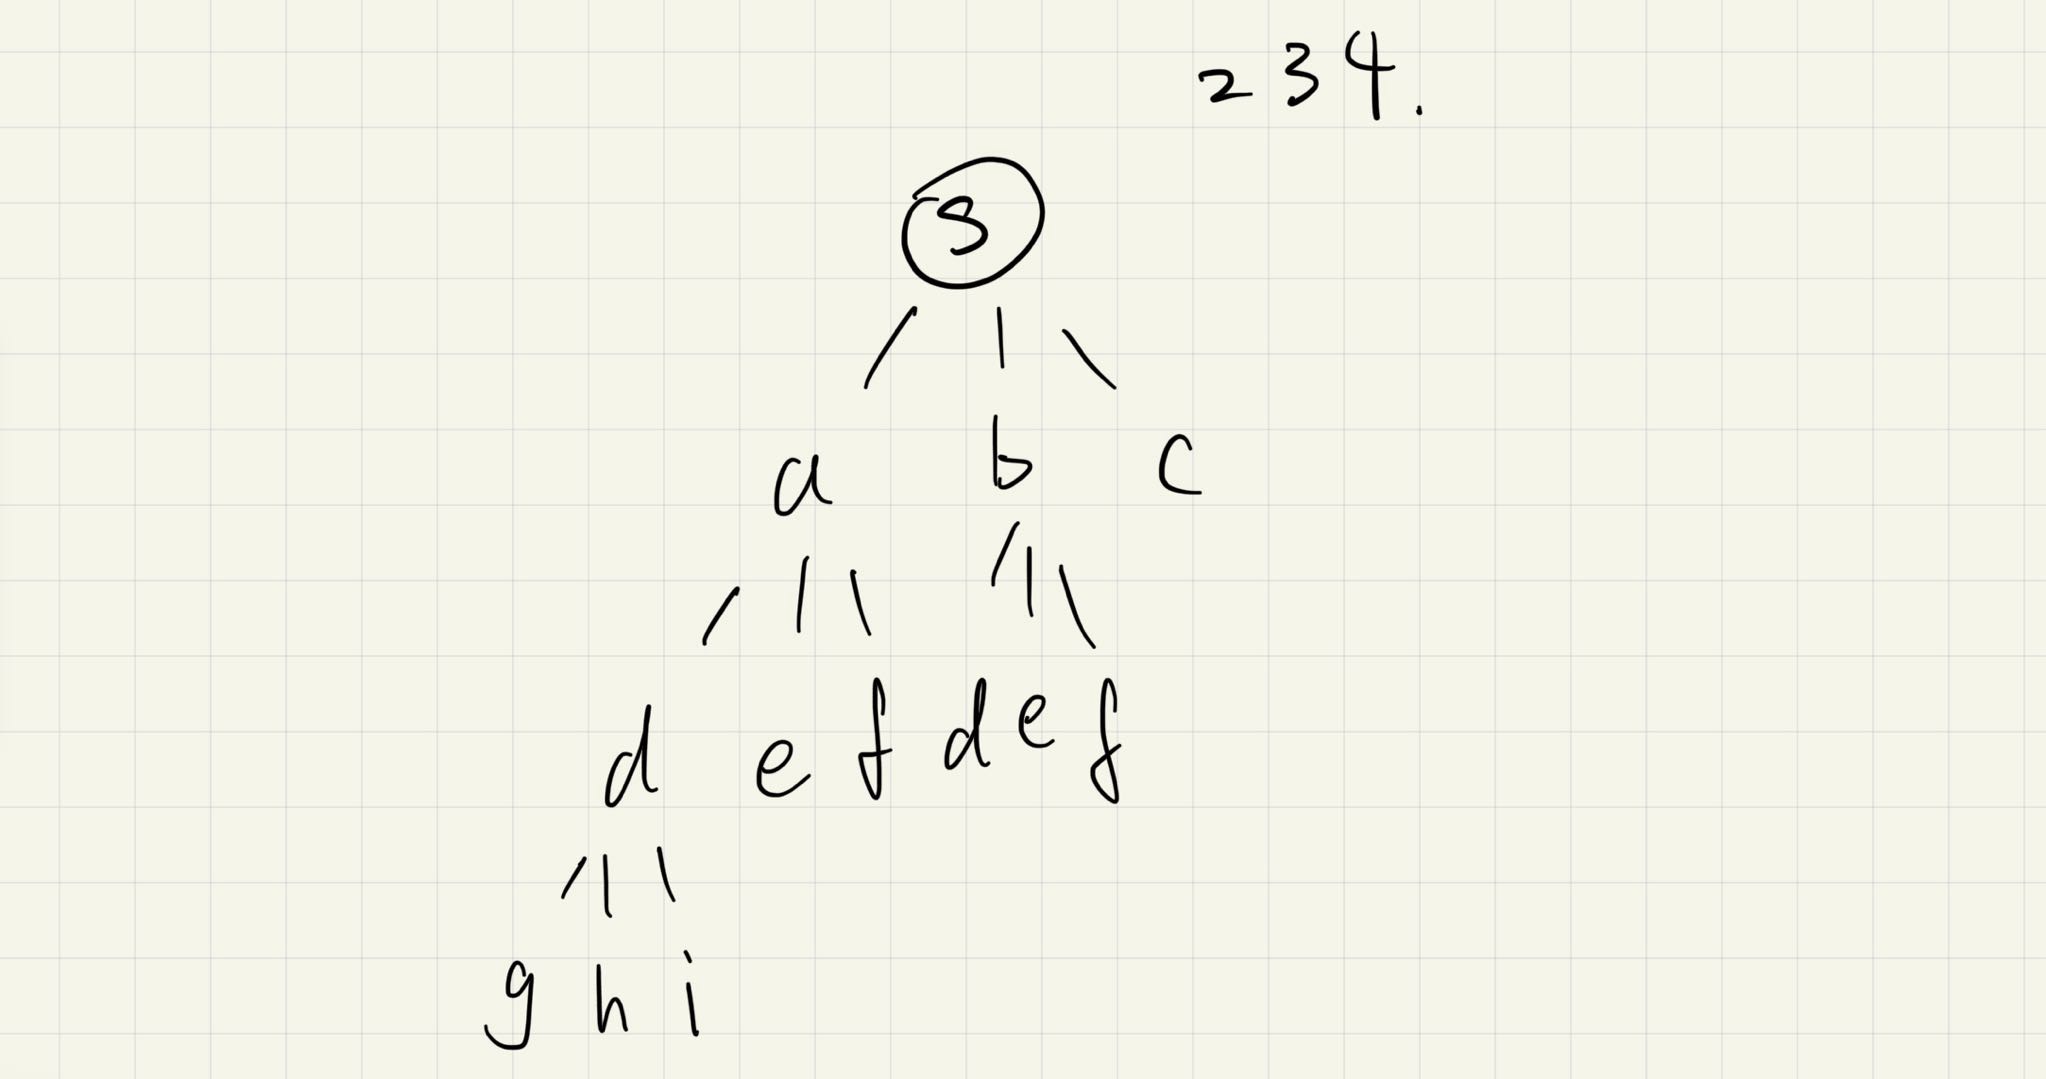 234.
S
a b c
d e f d e f
g h i